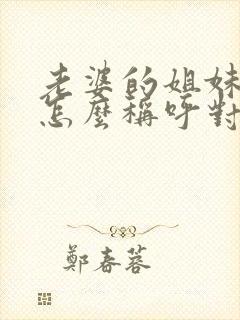 老婆的姐妹
怎麼稱呼對
鄭春蓉